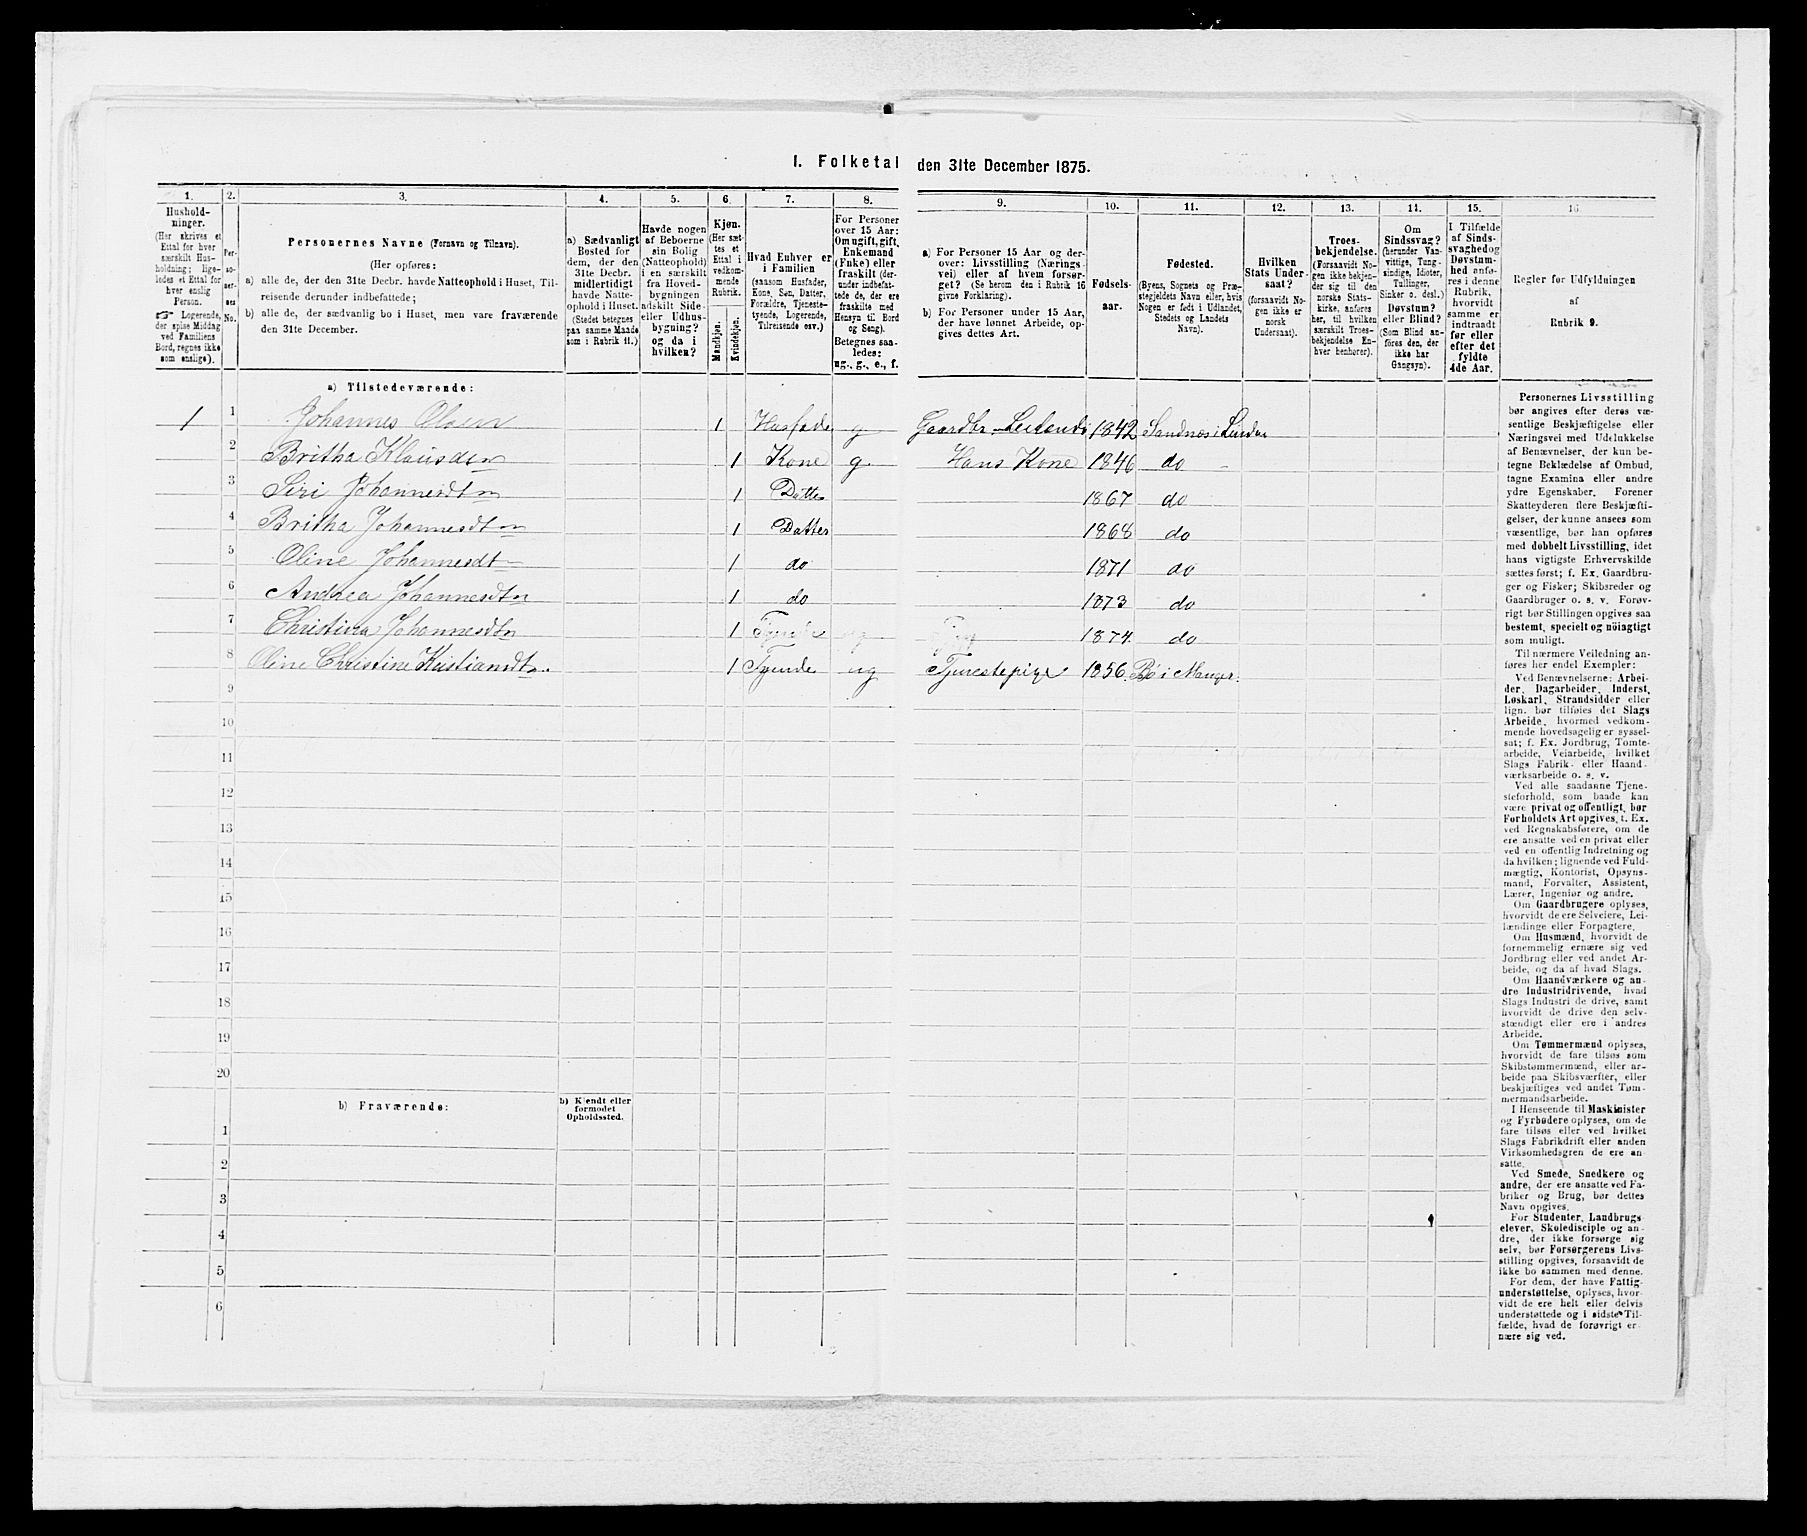 I. Folketal den 31te December 1875.
1. 2. 3. 4. 5. 6. 7. 8. 9. 10. 11. 12. 13. 14. 15. 16.
Hushold-
ninger.
(Her skrives et
Ettal for hver
særskilt Hus-
holdning; lige-
ledes et Ettal for
hver enslig
Person.
☞ Logerende,
der spise Middag
ved Familiens
Bord, regnes ikke
som enslige).
Per-
so-
ner-
nes
No.
Personernes Navne (Fornavn og Tilnavn).
(Her opføres:
a) alle de, der den 31te Decbr. havde Natteophold i Huset, Til-
reisende derunder indbefattede;
b) alle de, der sædvanlig bo i Huset, men vare fraværende
den 31te December.
a) Sædvanligt
Bosted for
dem, der den
31te Decbr.
midlertidigt
havde Natte-
ophold i Huset.
(Stedet betegnes
paa samme Maade
som i Rubrik 11.)
Havde nogen
af Beboerne
sin Bolig
(Natteophold)
i en særskilt
fra Hoved-
bygningen
adskilt Side-
eller Udhus-
bygning?
og da i
hvilken?
Kjøn.
(Her sæt-
tes et
Ettal i
vedkom-
mende
Rubrik.
Mandkjøn.
Kvindekjøn.
Hvad Enhver er
i Familien
(saasom Husfader,
Kone, Søn, Datter,
Forældre, Tjeneste-
tyende, Logerende,
Tilreisende osv.)
For Personer
over 15 Aar:
Om ugift, gift,
Enkemand
(Enke) eller
fraskilt (der-
under indbefat-
tede de, der ere
fraskilte med
Hensyn til Bord
og Seng).
Betegnes saa-
ledes:
ug., g., e., f.
a) For Personer 15 Aar og der-
over: Livsstilling (Nærings-
vei) eller af hvem forsør-
get? (Se herom den i Rubrik 16
givne Forklaring).
b) For Personer under 15 Aar,
der have lønnet Arbeide, op-
gives dettes Art.
Fødsels-
aar.
Fødested.
(Byens, Sognets og Præ-
stegjeldets Navn eller, hvis
Nogen er født i Udlandet,
Stedets og Landets
Navn).
Hvilken
Stats Under-
saat?
(forsaavidt No-
gen ikke er
norsk
Undersaat).
Troes-
bekjendelse.
(Forsaavidt No-
gen ikke bekjen-
der sig til den
norske Stats-
kirke, anføres
her, til hvilken
særskilt Troes-
bekjendelse En-
hver henhører).
Om
Sindssvag?
(herunder Van-
vittige, Tung-
sindige, Idioter,
Tullinger,
Sinker o. desl.)
Døvstum?
eller Blind?
(Som Blind an-
føres den, der
ikke har
Gangsyn).
I Tilfælde
af Sinds-
svaghed og
Døvstum-
hed anfø-
res i denne
Rubrik,
hvorvidt
samme er
indtraadt
før eller
efter det
fyldte
4de Aar.
Regler før Udfyldningen
af
Rubrik 9.
a) Tilstedeværende:
1 1 Johannes Olsen 1 Husfade g Gaardbr. Leilendi 1842 Sandnæs i Lindaa
2 Britha Klausdtn 1 Kone g. Hans Kone 1846 do
3 Siri Johannesdtn 1 Datte 1867 do
4 Britha Johannesdtn 1 Datter 1868 do
5 Oline Johannesdtn 1 do 1871 do
6 Andrea Johannesdtn 1 do 1873 do
7 Christina Johannesdtn 1 1874. do
8 Oline Christine Kristiansdtn. 1 Tyende ug Tjenestepige 1856. Bö i Manger.
9
10
11
12
13
14
15
16
17
18
19
20
b) Fraværende:
b) Kjendt eller
formodet
Opholdssted.
1
2
3
4
5
6
Personernes Livsstilling
bør angives efter deres væ-
sentlige Beskjæftigelse eller
Næringsvei med Udelukkelse
af Benævnelser, der kun be-
tegne Beklædelse af Ombud,
tagne Examina eller andre
ydre Egenskaber. Forener
Skatteyderen flere Beskjæfti-
gelser, der kunne ansees som
væsentlige, bør han opføres
med dobbelt Livsstilling, idet
hans vigtigste Erhvervskilde
sættes først; f. Ex. Gaardbru-
ger og Fisker; Skibsreder og
Gaardbruger o. s. v. Forøv-
rigt bør Stillingen opgives saa
bestemt, specielt og nöiagtigt
som muligt.
Til nærmere Veiledning an-
føres her endel Exempler:
Ved Benævnelserne: Arbei-
der, Dagarbeider, Inderst,
Løskarl, Strandsidder eller
lign. bør tilføies det Slags
Arbeide, hvormed vedkom-
mende hovedsagelig er syssel-
sat; f. Ex. Jordbrug, Tomte-
arbeide, Veiarbeide, hvilket
Slags Fabrik- eller Haand-
værksarbeide o. s. v.
Ved alle saadanne Tjene-
steforhold, som baade kan
være privat og offentligt, bør
Forholdets Art opgives, t. Ex.
ved Regnskabsførere, om de
ere ansatte ved en privat eller
ved en offentlig Indretning og
da hvilken; lignende ved Fuld-
mægtig, Kontorist, Opsyns-
mand, Forvalter, Assistent,
Lærer, Ingeniør og andre.
Om Gaardbrugere oplyses,
hvorvidt de ere Selveiere, Lei-
lændinge eller Forpagtere.
Om Husmænd, hvorvidt de
fornemmelig ernære sig ved
Jordbrug eller ved andet Ar-
beide, og da af hvad Slags.
Om Haandværkere og an-
dre Industridrivende, hvad
Slags Industri de drive, samt
hvorvidt de drive den selv-
stændigt eller ere i andres
Arbeide.
Om Tømmermænd oplyses,
hvorvidt de fare tilsøs som
Skibstømmermænd, eller ar-
beide paa Skibsværfter, eller
beskjæftiges ved andet Tøm-
mermandsarbeide.
I Henseende til Maskinister
og Fyrbødere oplyses, om de
fare tilsøs eller ved hvilket
Slags Fabrikdrift eller anden
Virksomhedsgren de ere an-
satte.
Ved Smede, Snedkere og
andre, der ere ansatte ved Fa-
briker og Brug, bør dettes
Navn opgives.
For Studenter, Landbrugs-
elever, Skoledisciple og an-
dre, der ikke forsørge sig
selv, bør Forsørgerens Livs-
stilling opgives, forsaavidt de
ikke bo sammen med denne.
For dem, der have Fattig-
understøttelse, oplyses, hvor-
vidt de ere helt eller delvis
understøttede og i sidste Til-
fælde, hvad de forøvrigt er-
nære sig ved.